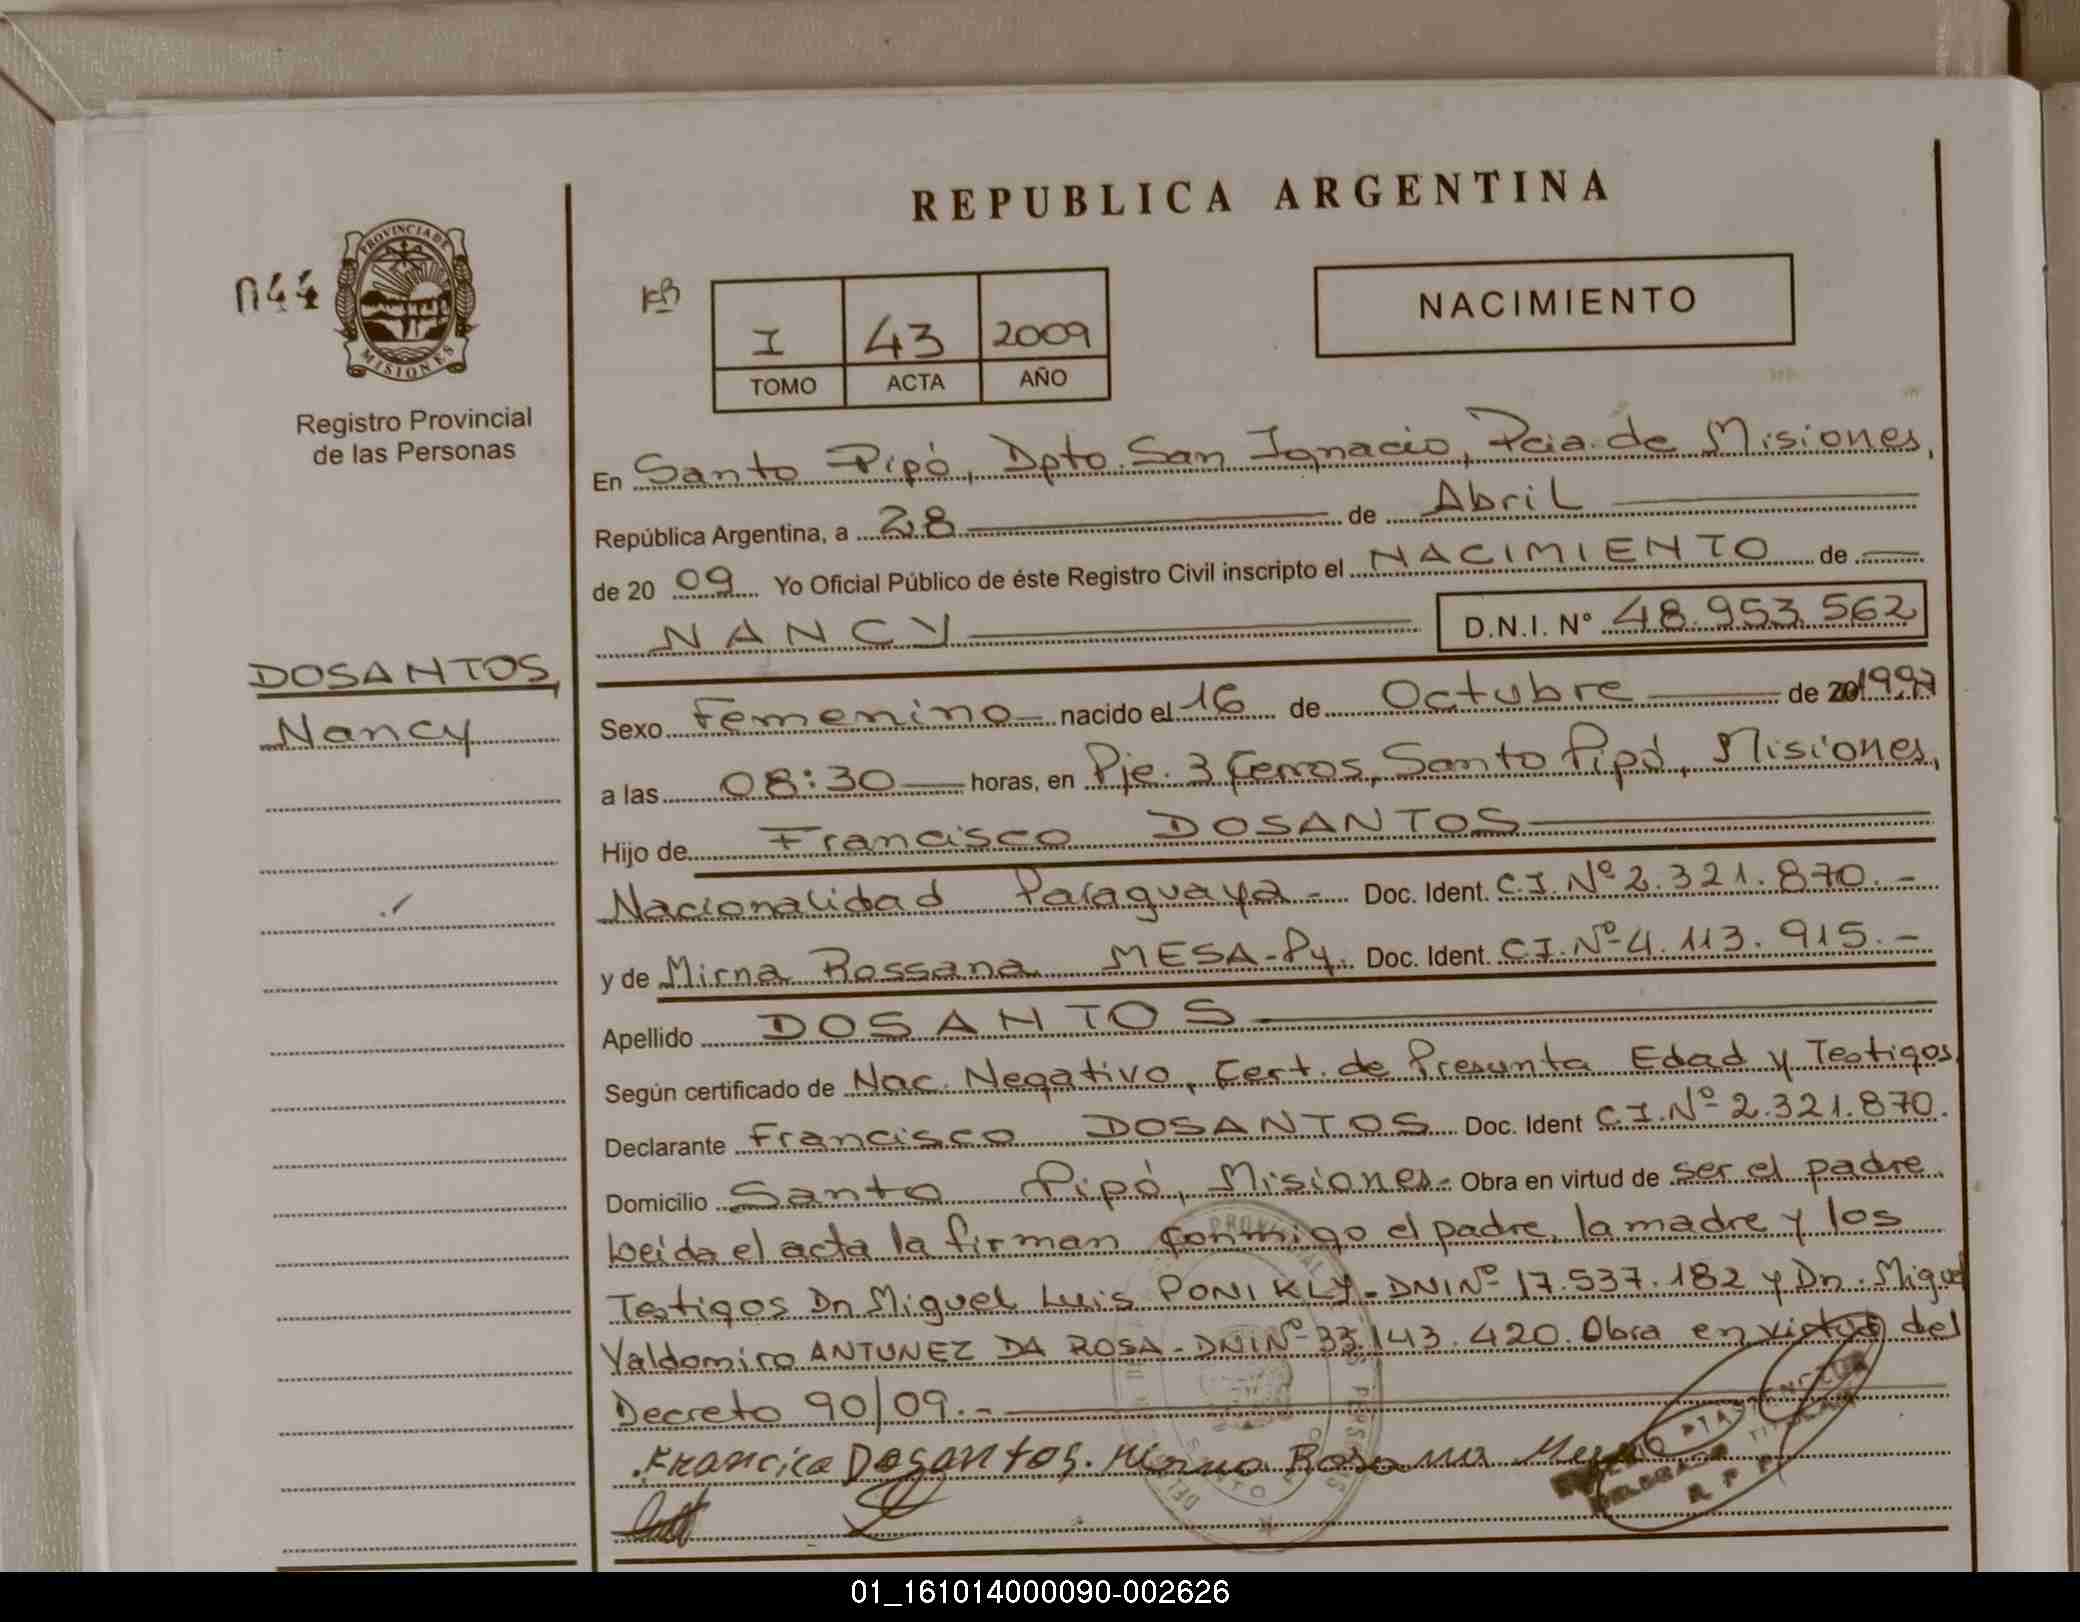 REPUBLICA ARGENTINA
PROVINCIA DE
MISIONES
Registro Provincial
de las Personas
I 43 2009
TOMO ACTA AÑO
NACIMIENTO
En Santo Pipó, Dpto. San Ignacio, Pcia. de Misiones,
República Argentina, a 28 de Abril
de 20 09 Yo Oficial Público de éste Registro Civil inscripto el NACIMIENTO de
NANCY D.N.I. N° 48.953.562
DOSANTOS,
Nancy
Sexo Femenino nacido el 16 de Octubre de 20 1997
a las 08:30 horas, en Pje. 3 Cerros, Santo Pipó, Misiones,
Hijo de Francisco DOSANTOS
Nacionalidad Paraguaya - Doc. Ident. C.I. Nº 2.321.870. -
y de Mirna Rossana MESA - Py. Doc. Ident. C.I. Nº 4.113.915. -
Apellido DOSANTOS
Según certificado de Nac. Negativo, Cert. de Presunta Edad y Testigos.
Declarante Francisco DOSANTOS Doc. Ident C.I. Nº 2.321.870.
Domicilio Santo Pipó, Misiones - Obra en virtud de ser el padre
Leida el acta la firman conmigo el padre, la madre y los
Testigos Dn Miguel Luis PONIKLY - DNI Nº 17.537.182 y Dn. Miguel
Valdomiro ANTUNEZ DA ROSA - DNI Nº 33.143.420. Obra en virtud del
Decreto 90/09. -
Francico Dosantos. Mirna Rosana Mesa
01_161014000090-002626